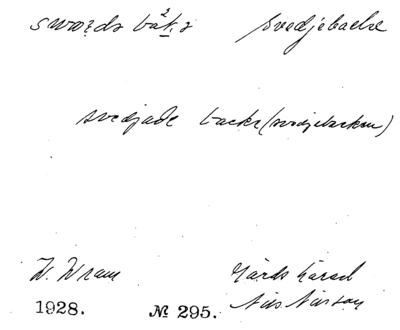 svedjebacke
svedjade backe (svedjebacken)
V. Vram Gärds härad
1928. № 295. Nils Nilsson